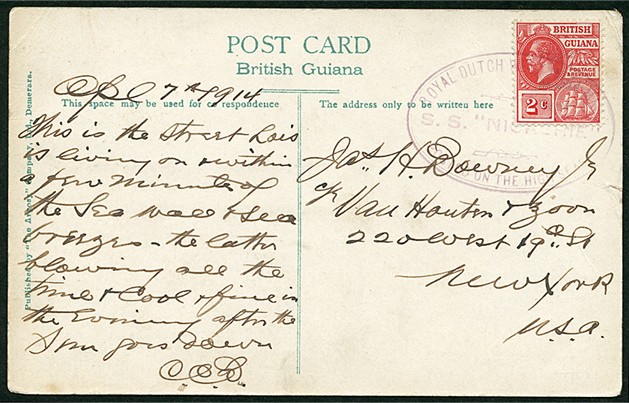 POST CARD
British Guiana
This space may be used for correspondence
The address only to be written here
Apl 7th 1914
This is the Street Lois
is living on & within
a few minutes of
the Sea Wall & Sea
breezes - the latter
blowing all the
time & cool & fine in
the Evening after the
Sun goes down
C.C.B.
Jas. H. Bowney Jr
c/o Van Houten & Zoon
220 West 19th St
New York
U.S.A.
BRITISH
GUIANA
POSTAGE
& REVENUE
2c
ROYAL DUTCH
S. S. "NICKERIE"
ON THE HIGH
Published by "The Argosy" Company, Ltd., Demerara.